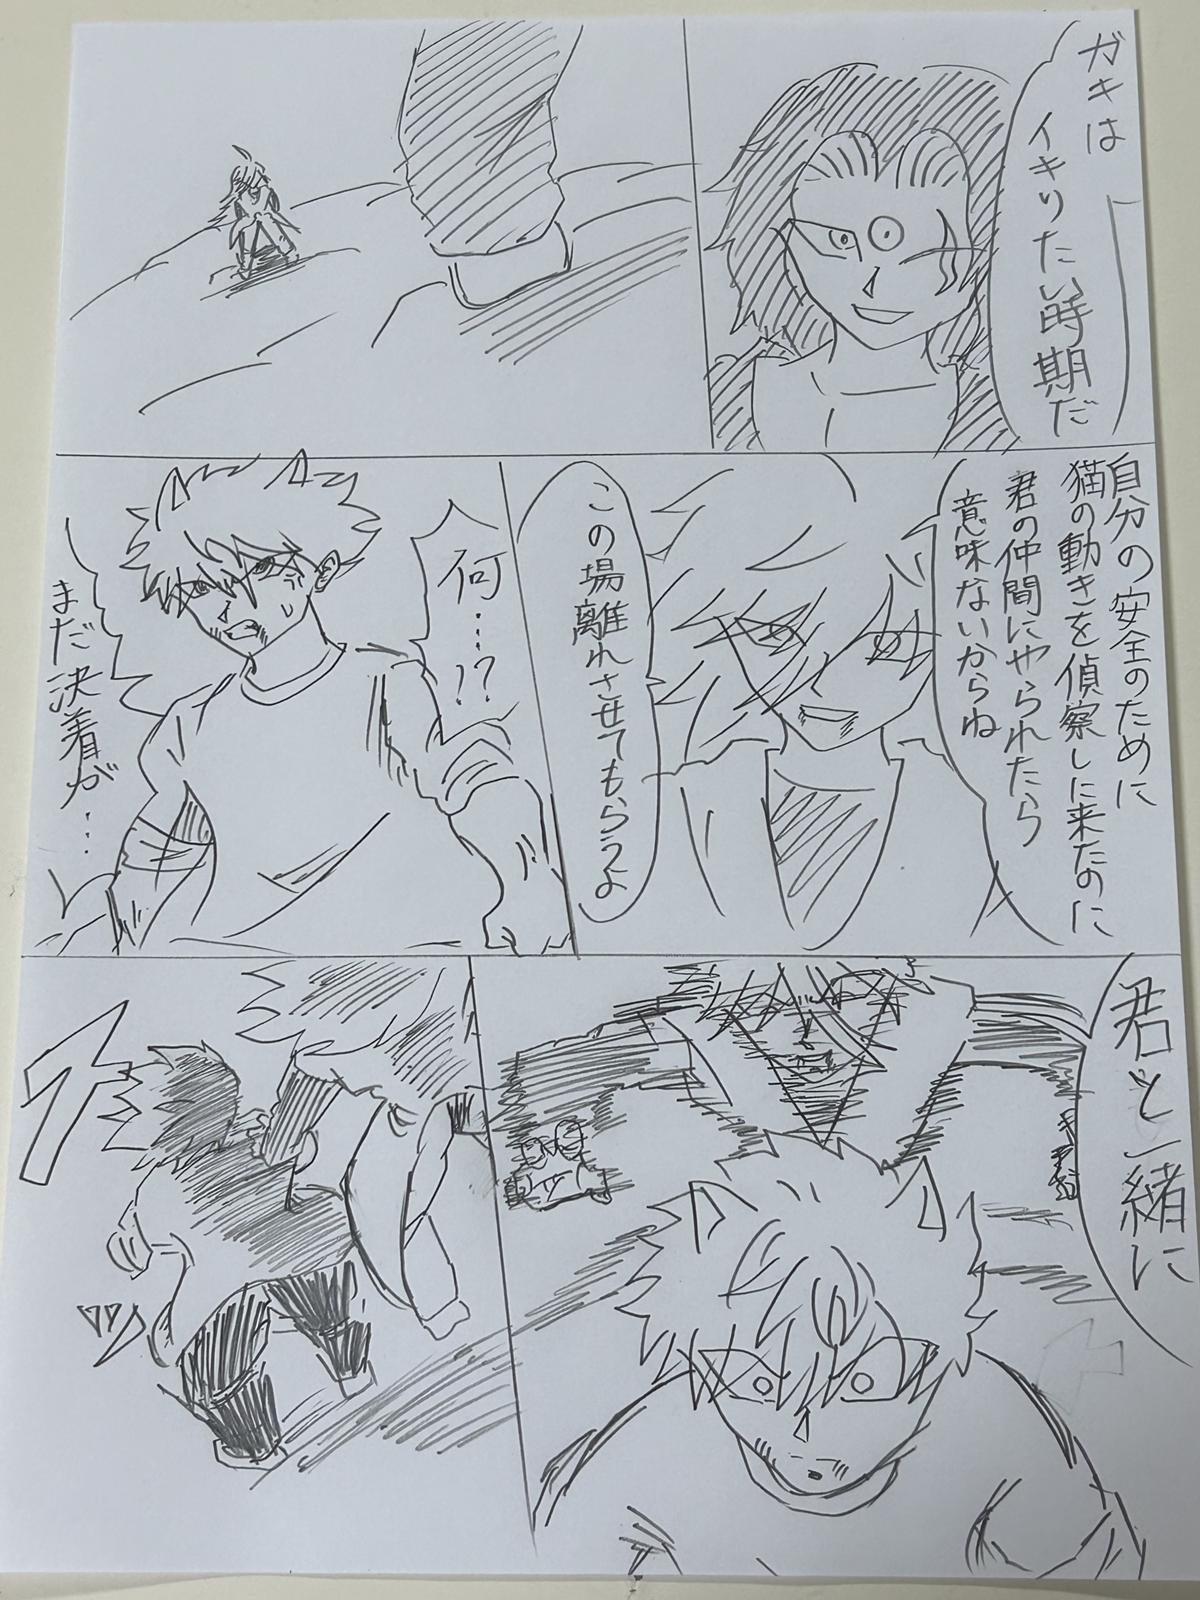 ガキは
イキりたい時期だ
自分の安全のために
猫の動きを偵察しに来たのに
君の仲間にやられたら
意味ないからね
この場離れさせてもらうよ
何…!?
まだ決着が…
君と一緒に